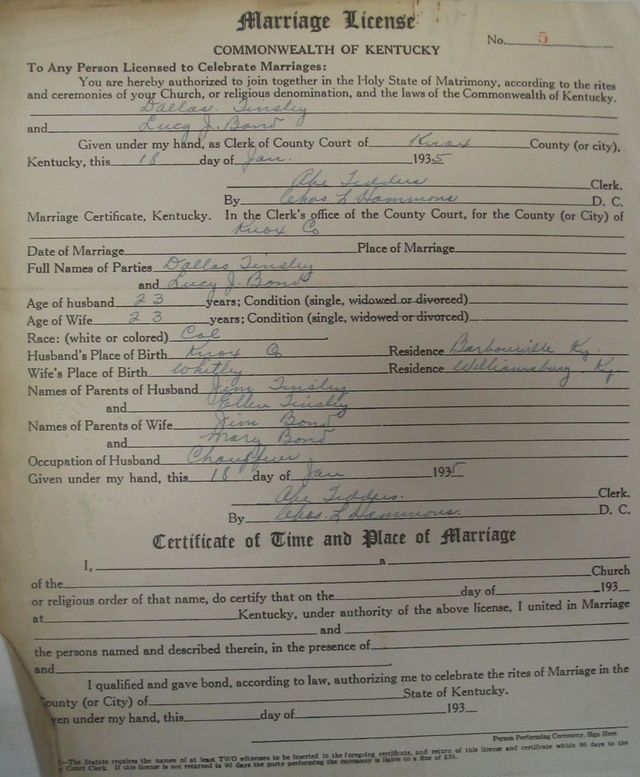 Marriage License
No. 5
COMMONWEALTH OF KENTUCKY
To Any Person Licensed to Celebrate Marriages:
You are hereby authorized to join together in the Holy State of Matrimony, according to the rites
and ceremonies of your Church, or religious denomination, and the laws of the Commonwealth of Kentucky.
Dallas Tinsley
and Lucy J. Bond
Given under my hand, as Clerk of County Court of Knox County (or city),
Kentucky, this 18 day of Jan. 1935
Abe Tedders Clerk.
By Chas. L. Hammons D. C.
Marriage Certificate, Kentucky. In the Clerk's office of the County Court, for the County (or City) of
Knox Co
Date of Marriage Place of Marriage
Full Names of Parties Dallas Tinsley
and Lucy J. Bond
Age of husband 23 years; Condition (single, widowed or divorced)
Age of Wife 23 years; Condition (single, widowed or divorced)
Race: (white or colored) Col
Husband's Place of Birth Knox Co Residence Barbourville Ky.
Wife's Place of Birth Whitley Residence Williamsburg Ky.
Names of Parents of Husband Jim Tinsley
and Ellen Tinsley
Names of Parents of Wife Jim Bond
and Mary Bond
Occupation of Husband Chauffeur
Given under my hand, this 18 day of Jan 1935
Abe Tedders. Clerk.
By Chas. L Hammons. D. C.
Certificate of Time and Place of Marriage
I, a
of the Church
or religious order of that name, do certify that on the day of 193
at Kentucky, under authority of the above license, I united in Marriage
and
the persons named and described therein, in the presence of
and .
I qualified and gave bond, according to law, authorizing me to celebrate the rites of Marriage in the
ounty (or City) of State of Kentucky.
ven under my hand, this day of 193
Person Performing Ceremony, Sign Here
—The Statute requires the names of at least TWO witnesses to be inserted in the foregoing certificate, and return of this license and certificate within 90 days to the
Court Clerk. If this license is not returned in 90 days the party performing the ceremony is liable to a fine of $50.